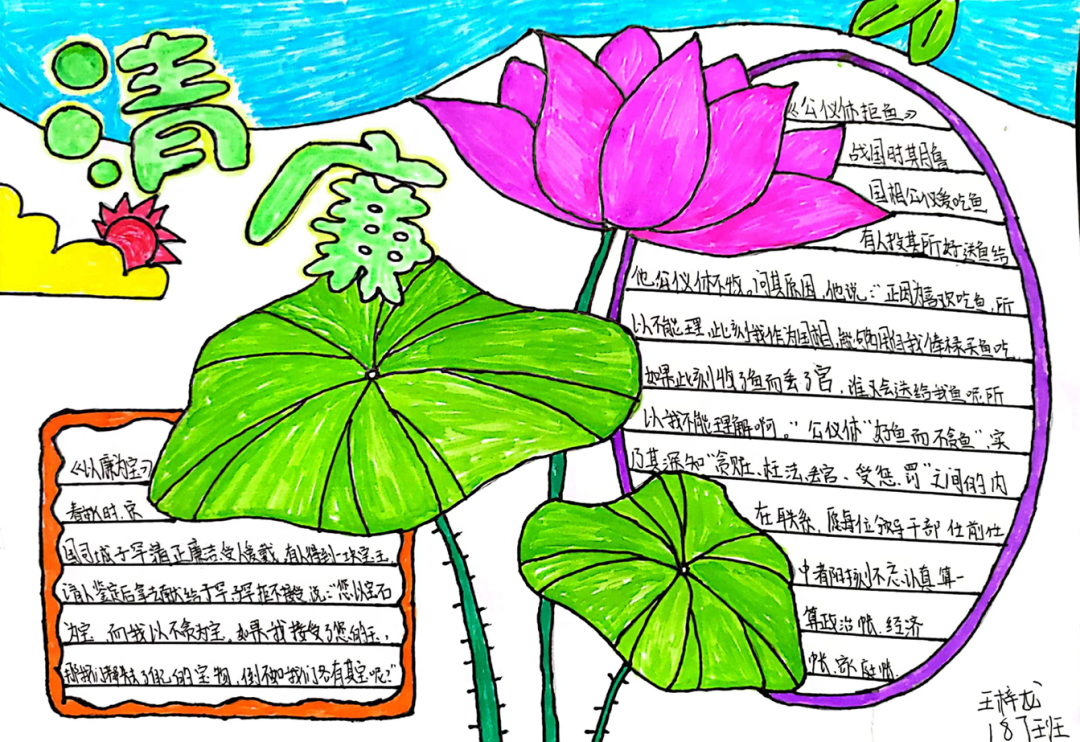 清廉
《公仪休拒鱼》
战国时期鲁
国相公仪爱吃鱼
有人投其所好送鱼给
他公仪休不收。问其原因,他说:"正因为喜欢吃鱼,所
以不能理,此刻我作为国相,能够用自我俸禄买鱼吃
如果此刻收了鱼而丢了官,谁又会送给我鱼呢,所
以我不能理解啊。"公仪休"好鱼而不食鱼",实
乃其深知"贪赃、枉法、丢官、受惩、罚"之间的内
在联系,愿每位领导干部在前任
中者阳 不忘认真算一
算政治帐、经济
帐、家庭帐
《以廉为宝》
春秋时,宋
国司城子罕清正廉洁,受人爱戴,有人得到一块宝玉
请人鉴定后拿去献给子罕子罕拒不接受,说:"您以宝石
为宝,而我以不贪为宝,如果我接受了您的玉,
那我们 失去了自己的宝物,倒不如我们各有其宝呢?"
王梓龙
18 班